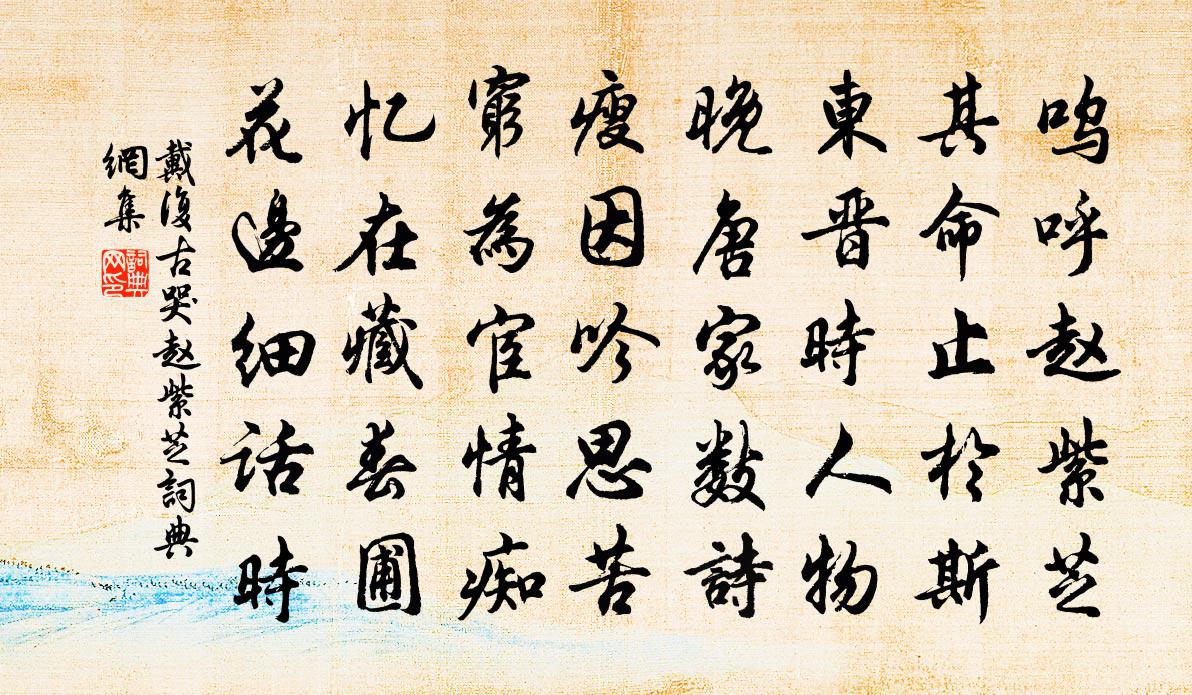 呜呼赵紫芝
其命止於斯
東晋時人物
晚唐家数詩
瘦因吟思苦
窮為宦情痴
忆在藏春圃
花邊细話時
戴復古哭赵紫芝詞典
網集
詞典
网印